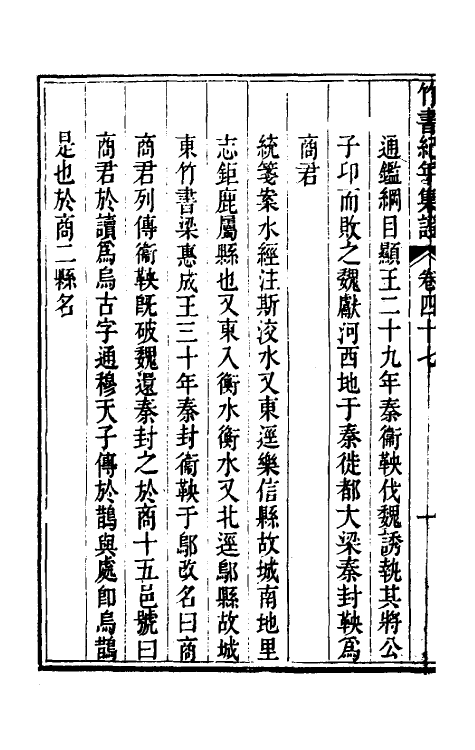 竹書紀年集證 卷四十七 十
通鑑綱目顯王二十九年秦衞鞅伐魏誘執其將公
子卬而敗之魏獻河西地于秦徙都大梁秦封鞅爲
商君
統箋案水經注斯洨水又東逕樂信縣故城南地里
志鉅鹿屬縣也又東入衡水衡水又北逕鄔縣故城
東竹書梁惠成王三十年秦封衞鞅于鄔改名曰商
商君列傳衞鞅旣破魏還秦封之於商十五邑號曰
商君於讀爲烏古字通穆天子傳於鵲與處卽烏鵲
是也於商二縣名